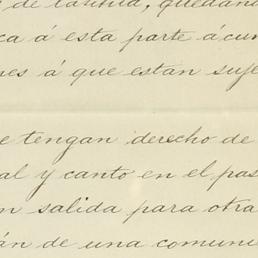 de latinia, quedand
ca á esta parte á cum
nes á que estan suje
e tengan derecho de
al y canto en el pas
n salida para otra
án de una comuni